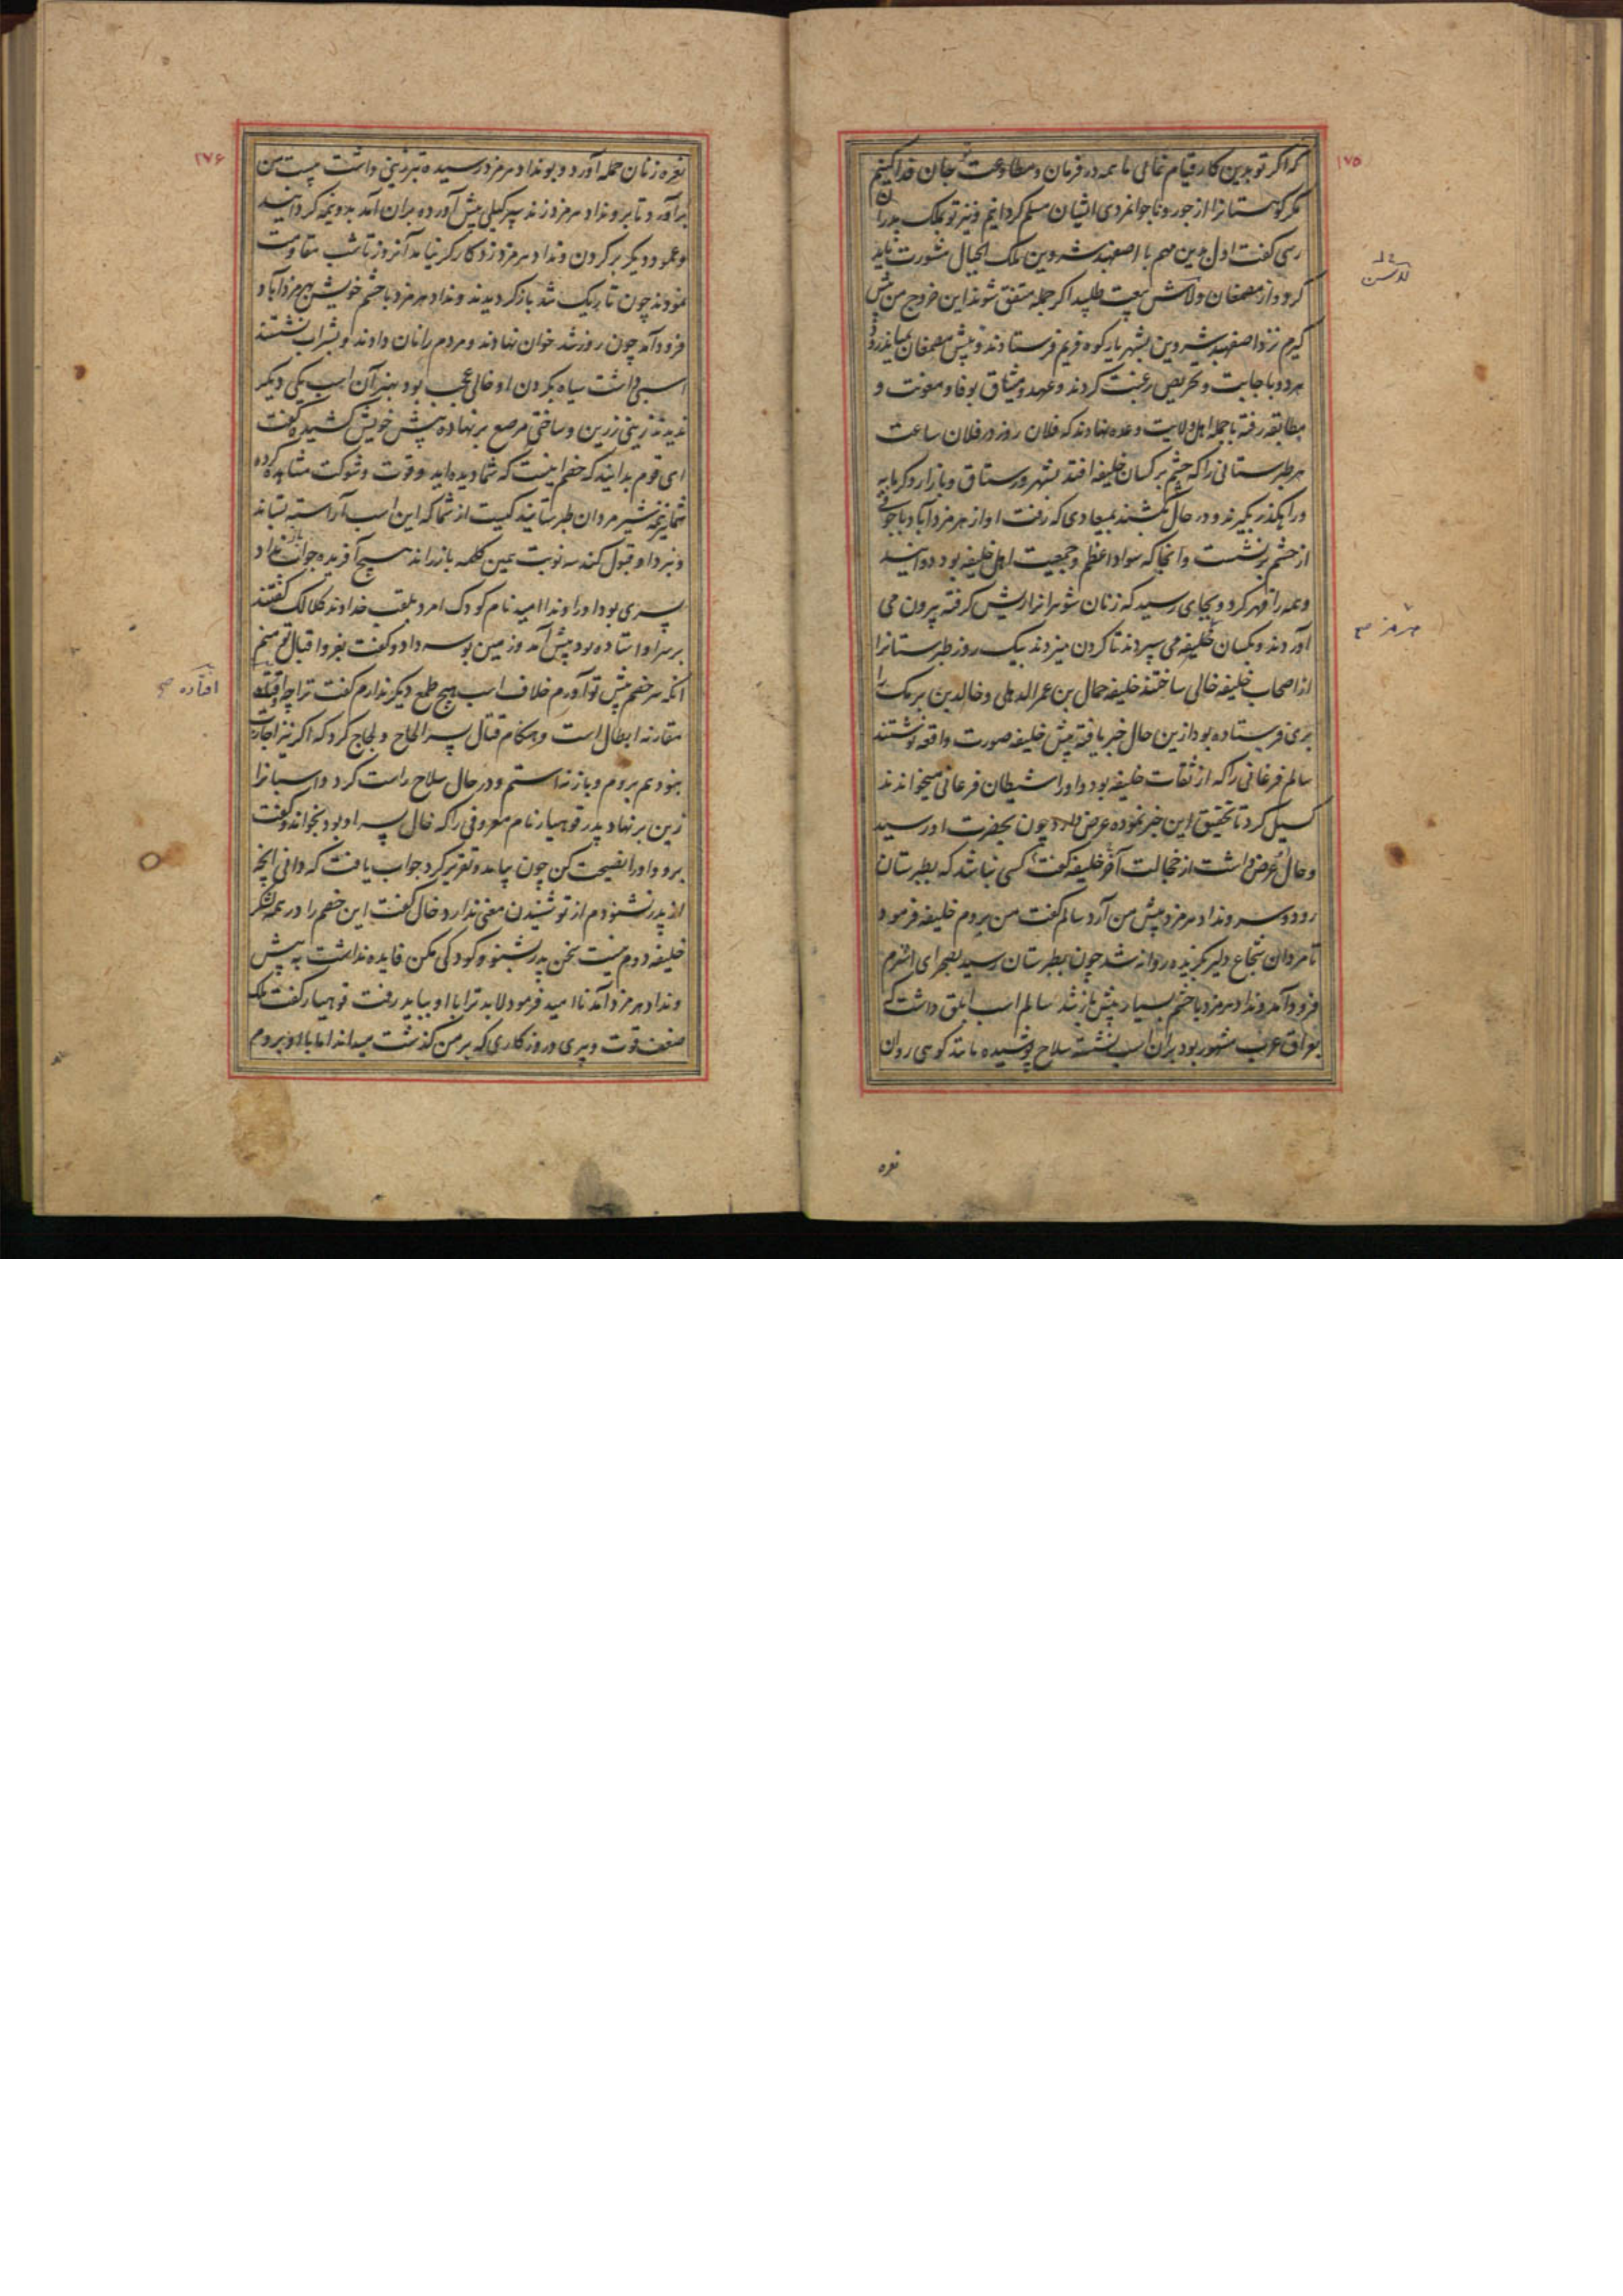 ۱۷۵
که اگر تو بدین کار قیام نمائی ما همه در فرمان و مطاوعت تو جان فدا کنیم
مگر کوهستانرا از جور و ناجوانمردی ایشان مسلم گردانیم و نیز تو بملک پدران
رسی گفت اول درین مهم با اصفهبد شروین ملک الجبال مشورت باید
کرد و از مصمغان ولاش بیعت طلبید اگر جمله متفق شوند این خروج من پیش
گیرم نزد اصفهبد شروین بشهریار کوه فریم فرستادند و پیش مصمغان بمیاندرود
هر دو با جابت و تحریص رغبت کردند و عهد و میثاق بوفا و معونت و
مطابقه رفته با جمله اهل ولایت وعده نهادند که فلان روز در فلان ساعت
هر طبرستانی را که چشم بر کسان خلیفه افتد بشهر و رستاق و بازار و گرمابه
و راهگذر بگیرند و در حال بکشند بمیعادی که رفت او از هرمزدآباد با جوقی
از حشم برنشست و آنجا که سواد اعظم و جمعیت اهل خلیفه بود دوانید
و همه را قهر کرد و بجایی رسید که زنان شوهرانرا ریش گرفته بیرون می
آوردند و بکسان خلیفه می سپردند تا گردن میزدند بیک روز طبرستانرا
از اصحاب خلیفه خالی ساختند خلیفه حمال بن عمر الذهلی و خالد بن برمک را
بری فرستاده بود ازین حال خبر یافته پیش خلیفه صورت واقعه نوشتند
سالم فرغانی را که از ثقات خلیفه بود و او را شیطان فرغانی میخواندند
گسیل کرد تا تحقیق این خبر نموده عرض دارد چون بحضرت او رسید
و حال عرض داشت از خجالت آن خلیفه گفت کسی نباشد که بطبرستان
رود و سر ونداد هرمزد پیش من آرد سالم گفت من بروم خلیفه فرمود
تا مردان شجاع دلیر بگزیده روانه شد چون بطبرستان رسید بصحرای اشرم
فرود آمد ونداد هرمزد با حشم بسیار پیش باز شد سالم اسب ابلق داشت که
بعراق عرب مشهور بود بران اسب نشسته سلاح پوشیده مانند کوهی روان
نعره
۱۷۶
نعره زنان حمله آورد و بونداد هرمزد رسیده تبرزینی داشت بیست من
برآورد تا بر ونداد هرمزد زند سپر گیلی پیش آورده بران آمد بدو نیمه گردانید
و عمود دیگر بر گردن ونداد هرمزد زد کارگر نیامد آنروز تا شب مقاومت
نمودند چون تاریک شد بازگردیدند ونداد هرمزد با حشم خویش بهرمزدآباد
فرود آمد چون روز شد خوان نهادند و مردم را نان دادند و بشراب نشستند
اسبی داشت سیاه بگردن او خالی عجب بود بهنر آن اسب یکی دیگر
ندیدند زینی زرین و ساختی مرصع برنهاده پیش خویش کشیده گفت
ای قوم بدانید که خصم اینست که شما دیده اید و قوت و شوکت مشاهده کرده
شما نیز همه شیر مردان طبرستانید کیست از شما که این اسب آراسته بستاند
و نبرد او قبول کند سه نوبت همین کلمه باز راند هیچ آفریده جواب باز نداد
پسری بود او را ونداامید نام کودک امرد بلقب خداوند کلالک گفتند
بر سر او استاده بود پیش آمد و زمین بوسه داد و گفت بفر و اقبال تو منم
آنکه سر خصم پیش تو آورم خلاف اسب هیچ طمع دیگر ندارم گفت ترا چه افتاده
مقارنه ابطال است و هنگام قتال پسر الحاح و لجاج کرد که اگر نیز اجازت
بخودهم بروم و باز نه استم و در حال سلاح راست کرد و اسبانرا
زین برنهاد پدر قوهیار نام معروفی را که خال پسر او بود بخواند و گفت
برو و او را نصیحت کن چون بیامد و تقریر کرد جواب یافت که دانی آنچه
از پدر نشنودم از تو شنیدن معنی ندارد خال گفت این خصم را در همه لشکر
خلیفه دوم نیست سخن پدر بشنو و کودکی مکن فایده نداشت به پیش
ونداد هرمزد آمد ناامید فرمود لابد ترا با او بباید رفت قوهیار گفت ملک
ضعف قوت و پیری و روزگاری که بر من گذشت میداند اما با او بروم
افتاده صح